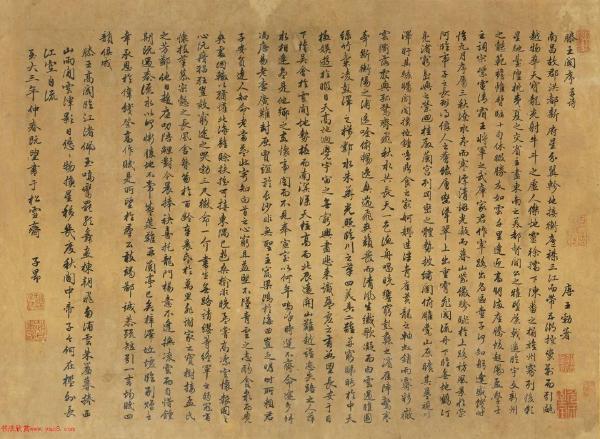 滕王閣序并詩
唐王勃著
南昌故郡洪都新府星分翼軫地接衡廬襟三江而帶五湖控蠻荊而引甌
越物華天寶龍光射牛斗之虛人傑地靈徐孺下陳蕃之榻雄州霧列俊彩
星馳臺隍枕夷夏之交賓主盡東南之美都督閻公之雅望棨戟遙臨宇文新州
之懿範襜帷暫駐十旬休暇勝友如雲千里逢迎高朋滿座騰蛟起鳳孟學士
之詞宗紫電清霜王將軍之武庫家君作宰路出名區童子何知躬逢勝餞時
惟九月序屬三秋潦水盡而寒潭清煙光凝而暮山紫儼驂騑於上路訪風景於崇
阿臨帝子之長洲得仙人之舊館層巒聳翠上出重霄飛閣流丹下臨無地鶴汀
鳧渚窮島嶼之縈迴桂殿蘭宮列岡巒之體勢披繡闥俯雕甍山原曠其盈視川
澤盱其駭矚閭閻撲地鐘鳴鼎食之家舸艦迷津青雀黃龍之舳虹銷雨霽彩徹
雲衢落霞與孤鶩齊飛秋水共長天一色漁舟唱晚響窮彭蠡之濱雁陣驚寒
聲斷衡陽之浦遙吟俯暢逸興遄飛爽籟發而清風生纖歌凝而白雲遏睢園
綠竹氣凌彭澤之樽鄴水朱華光照臨川之筆四美具二難并窮睇眄於中天
極娛遊於暇日天高地迥覺宇宙之無窮興盡悲來識盈虛之有數望長安於日
下指吳會於雲間地勢極而南溟深天柱高而北辰遠關山難越誰悲失路之人萍
水相逢盡是他鄉之客懷帝閽而不見奉宣室以何年嗚呼時運不齊命途多舛
馮唐易老李廣難封屈賈誼於長沙非無聖主竄梁鴻於海曲豈乏明時所賴君
子安貧達人知命老當益壯寧知白首之心窮且益堅不墜青雲之志酌貪泉而覺
爽處涸轍猶懽北海雖賒扶搖可接東隅已逝桑榆非晚孟嘗高潔空懷報國之
心阮籍猖狂豈效窮途之哭勃三尺微命一介書生無路請纓等終軍之弱冠有
懷投筆慕宗愨之長風舍簪笏於百齡奉晨昏於萬里非謝家之寶樹接孟氏
之芳鄰他日趨庭叨陪鯉對今晨捧袂喜托龍門楊意不逢撫凌雲而自惜鍾
期既遇奏流水以何慚嗚呼勝地不常盛筵難再蘭亭已矣梓澤丘墟臨別贈言
幸承恩於偉餞登高作賦是所望於群公敢竭鄙誠恭疏短引一言均賦四
韻俱成
滕王高閣臨江渚佩玉鳴鸞罷歌舞畫棟朝飛南浦雲朱簾暮捲西
山雨閒雲潭影日悠悠物換星移幾度秋閣中帝子今何在檻外長
江空自流
至大三年仲春既望書于松雪齋 子昂